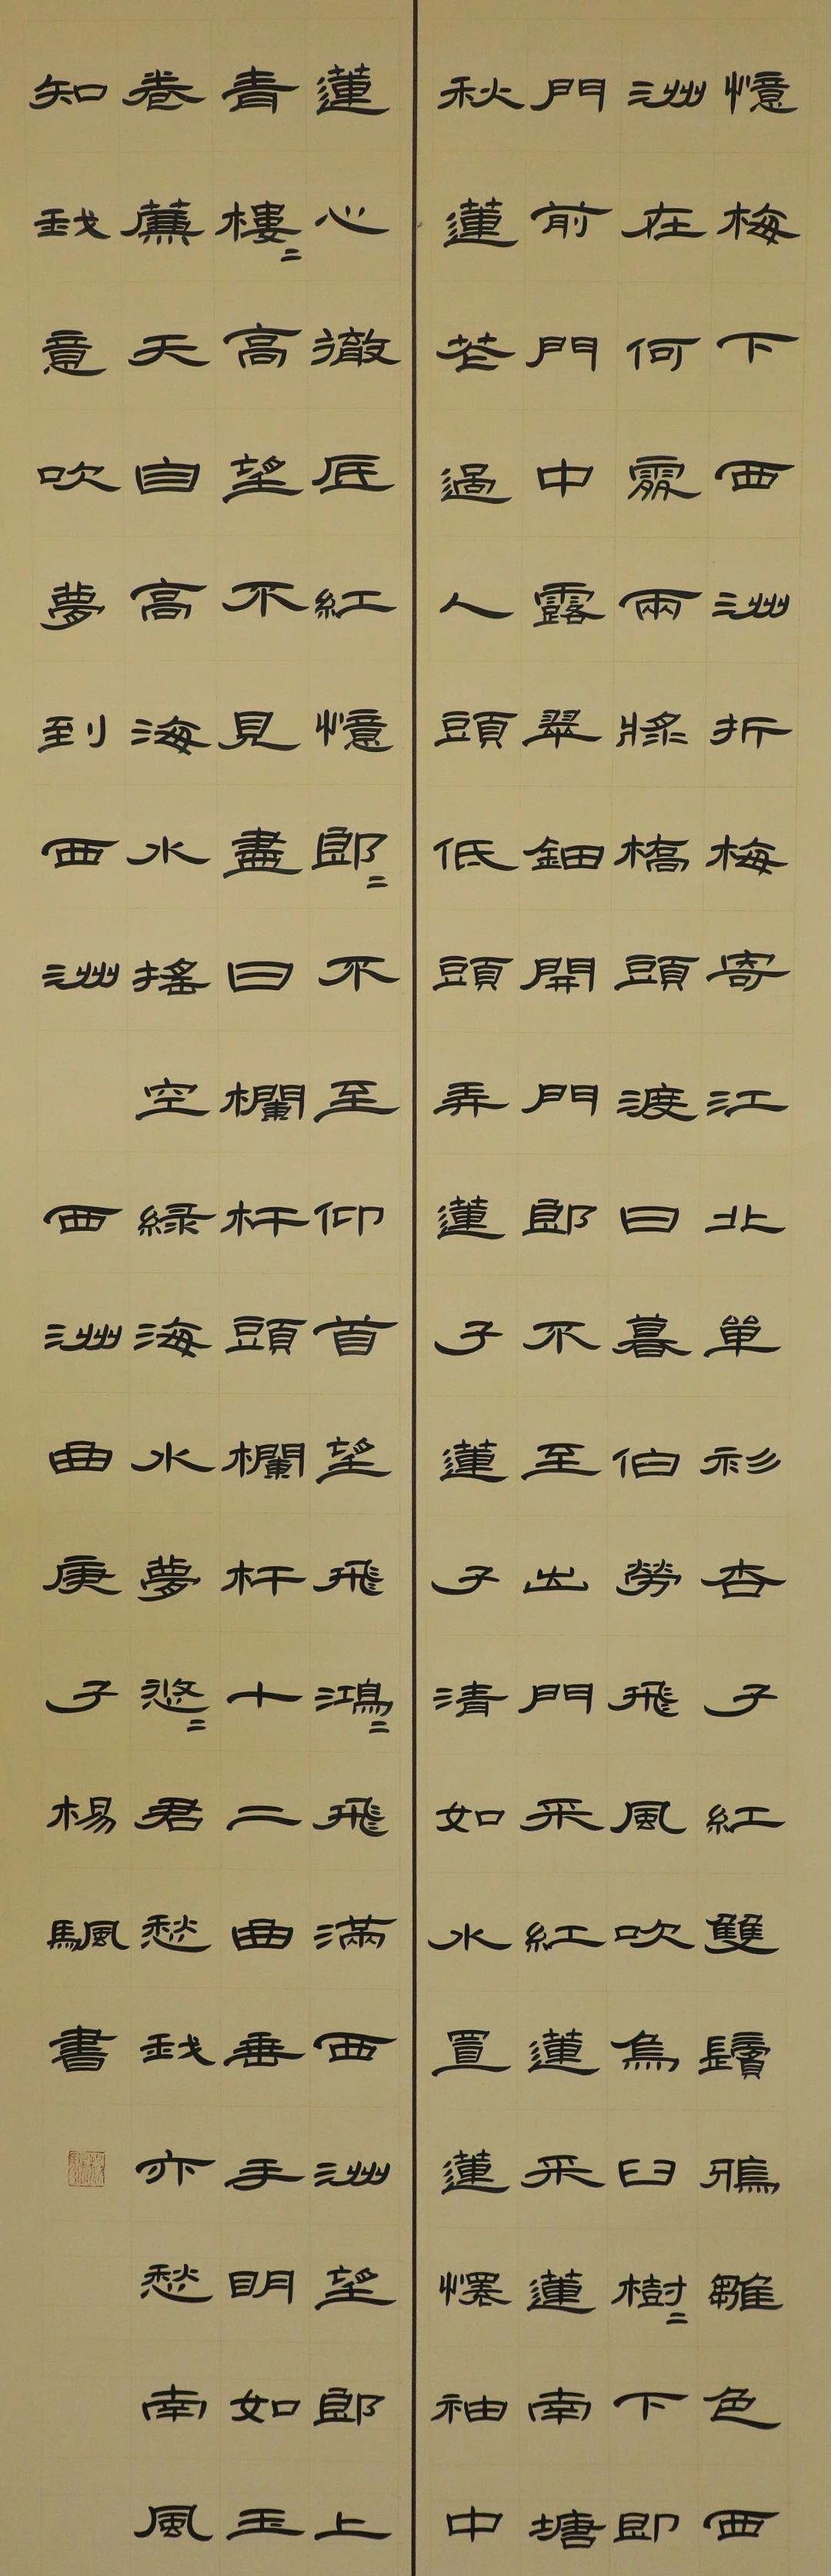 憶梅下西洲折梅寄江北單衫杏子紅雙鬢鴉雛色西
洲在何處兩槳橋頭渡日暮伯勞飛風吹烏臼樹〻下即
門前門中露翠鈿開門郎不至出門采紅蓮采蓮南塘
秋蓮花過人頭低頭弄蓮子蓮子清如水置蓮懷袖中
蓮心徹底紅憶郎〻不至仰首望飛鴻〻飛滿西洲望郎上
青樓〻高望不見盡日欄杆頭欄杆十二曲垂手明如玉
卷簾天自高海水搖空綠海水夢悠〻君愁我亦愁南風
知我意吹夢到西洲 西洲曲庚子楊颿書